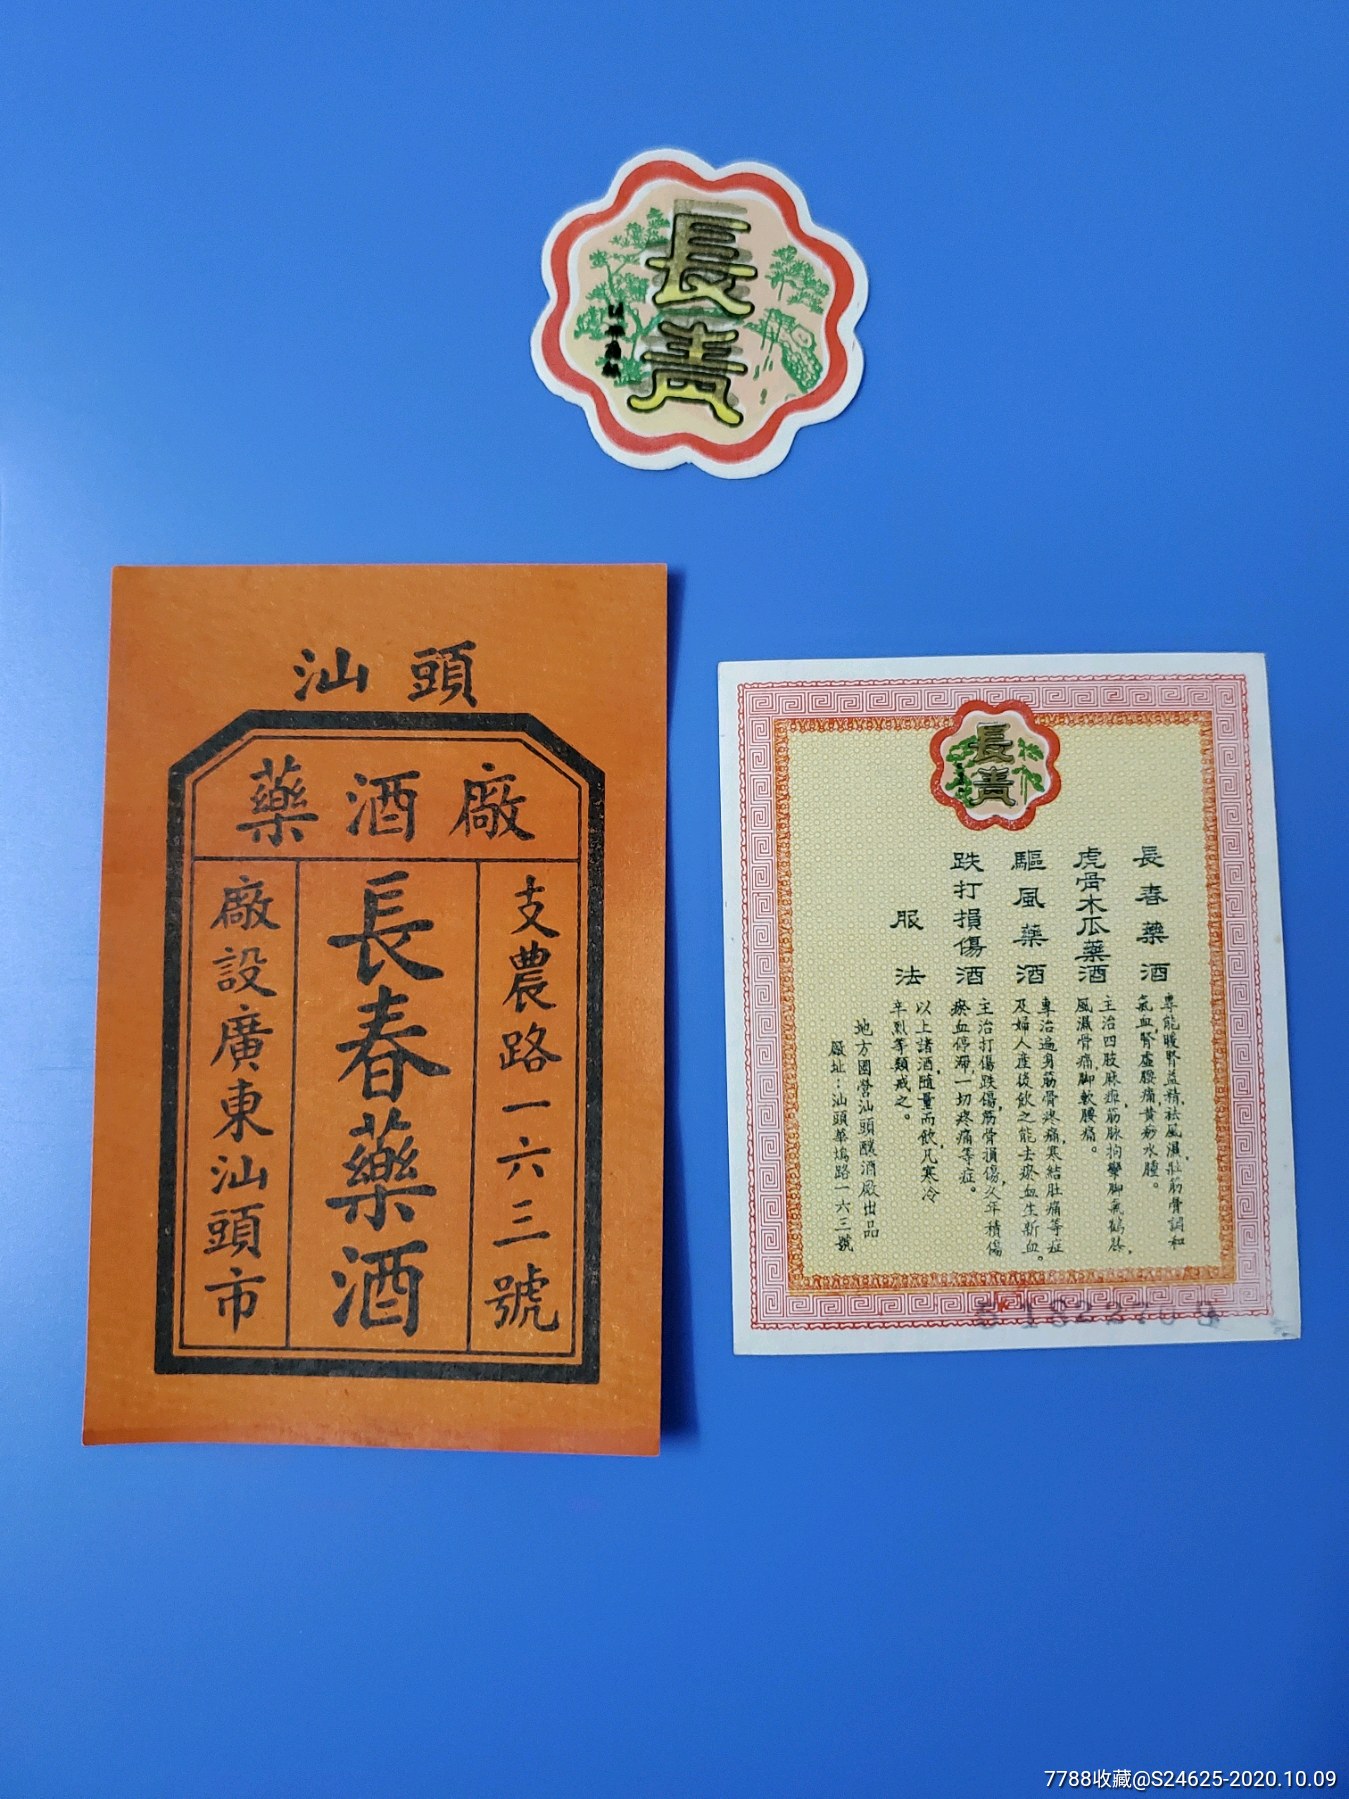 長青
汕頭
藥酒廠
支農路一六三號
長春藥酒
廠設廣東汕頭市
長青
長春藥酒
專能暖腎益精,祛風濕,壯筋骨,調和
氣血,腎虛腰痛,黃疹水腫。
虎骨木瓜藥酒
主治四肢麻痺,筋脉拘攣,脚氣鶴膝,
風濕骨痛,脚軟腰痛。
驅風藥酒
專治遍身筋骨疼痛,寒結肚痛等症
及婦人產後飲之能去瘀血生新血。
跌打損傷酒
主治打傷跌傷,筋骨損傷,久年積傷
瘀血停滯,一切疼痛等症。
服法
以上諸酒隨量而飲,凡寒冷
辛烈等類戒之。
地方國營汕頭釀酒廠出品
廠址:汕頭華塢路一六三號
7788收藏@S24625-2020.10.09